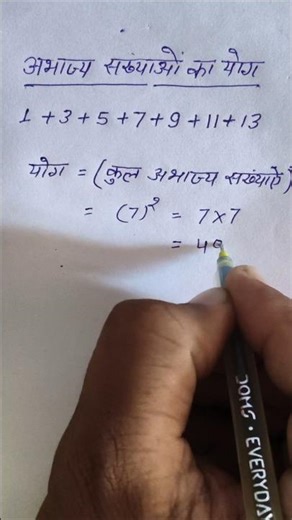 अभाज्य संख्याओं का योग
1 + 3 + 5 + 7 + 9 + 11 + 13
योग = (कुल अभाज्य संख्याऐं)
= (7)² = 7 × 7
= 49
DOMS • EVERYDAY